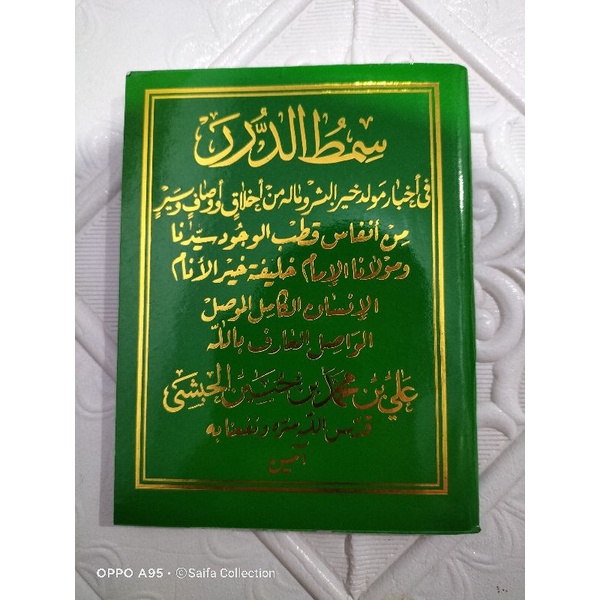 سمط الدرر
في أخبار مولد خير البشر وماله من أخلاق وأوصاف وسير
من أنفاس قطب الوجود سيدنا
ومولانا الإمام خليفة خير الأنام
الإنسان الكامل الموصل
الواصل العارف بالله
علي بن محمد بن حسين الحبشي
قدس الله سره ونفعنا به
آمين
OPPO A95 · ©Saifa Collection